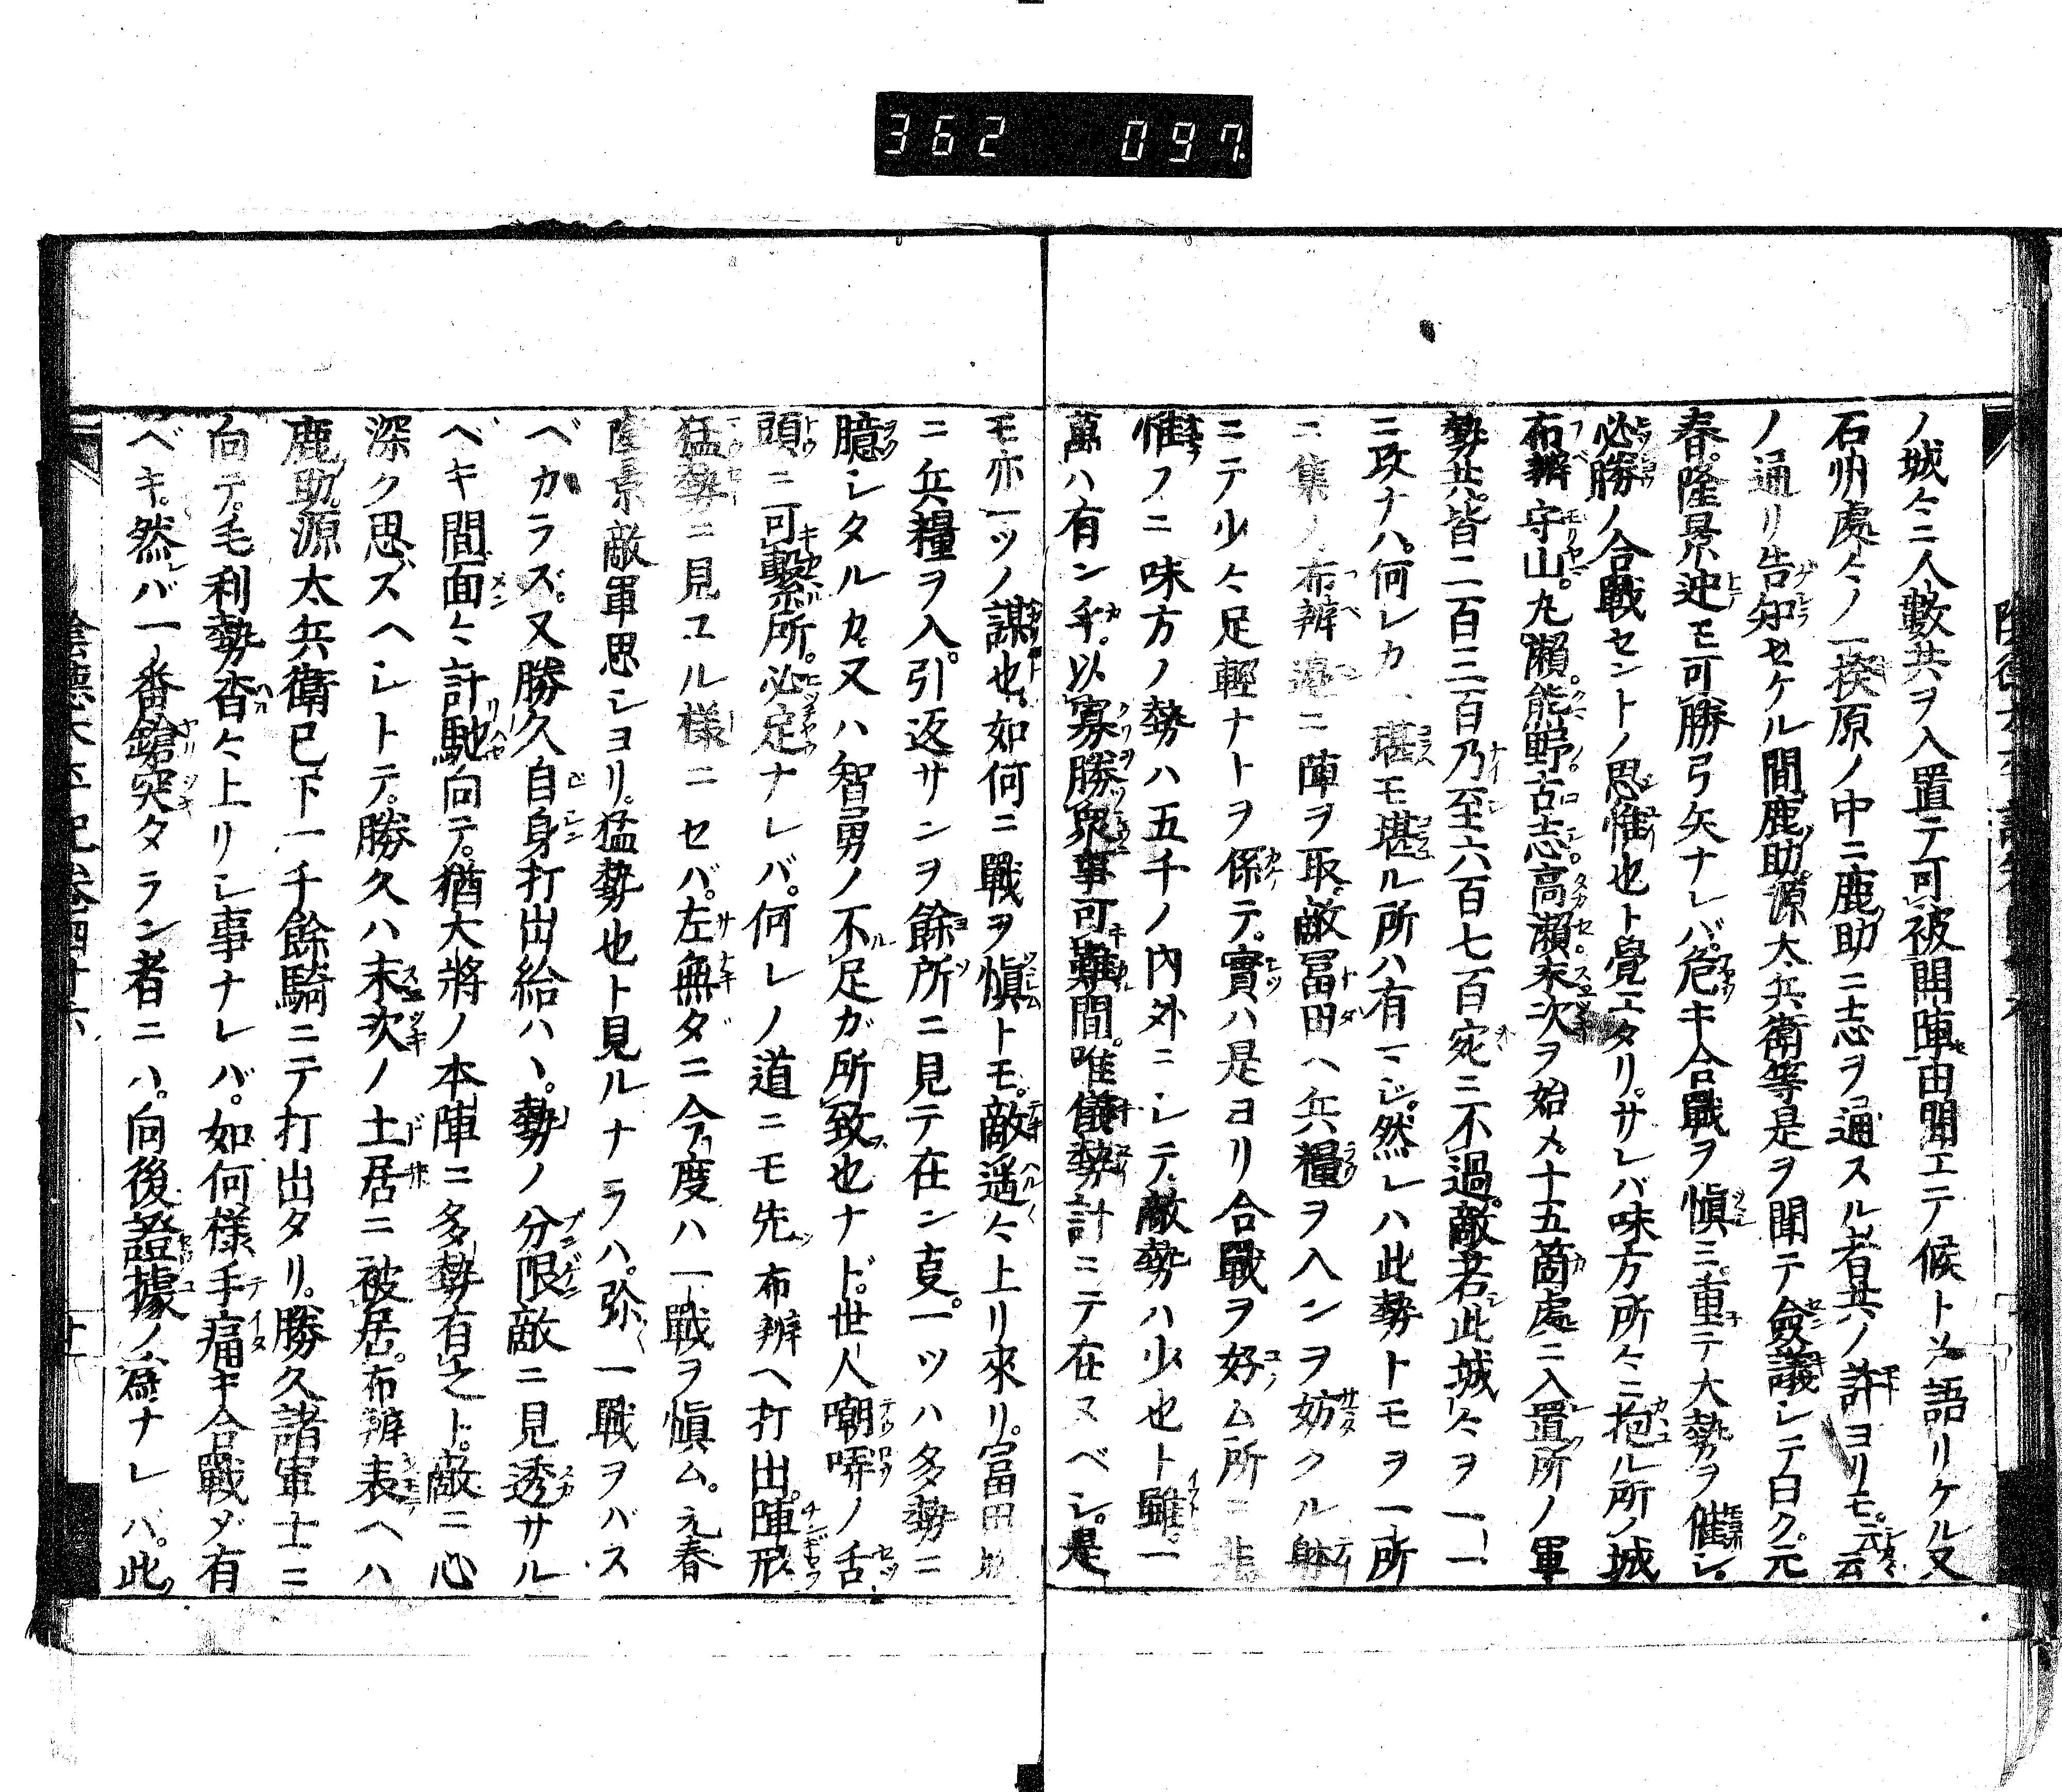 362 097
ノ城々ニ人數共ヲ入置テ可被開陣由聞エテ候トソ語リケル又
石州處々ノ一揆原ノ中ニ鹿助ニ志ヲ通スル者共ノ許ヨリモ云云
ノ通リ告知セケル間鹿助源太兵衛等是ヲ聞テ僉議シテ曰ク元
春隆景迚モ可勝弓矢ナレバ危キ合戰ヲ愼ミ重テ大勢ヲ催シ
必勝ノ合戰セントノ思惟也ト覺エタリサレバ味方所々ニ抱ル所ノ城
布辨守山丸瀨熊野古志高瀨末次ヲ始メ十五箇處ニ入置所ノ軍
勢共皆二百三百乃至六百七百宛ニ不過敵若此城々ヲ一一
ニ攻ナハ何レカ一堪モ堪ル所ハ有マジ然レハ此勢トモヲ一所
ニ集ノ布辨邉ニ陣ヲ取敵冨田ヘ兵糧ヲ入ンヲ妨クル躰
ニテ少々足輕ナトヲ係テ實ハ是ヨリ合戰ヲ好ム所ニ非
惟フニ味方ノ勢ハ五千ノ内外ニシテ敵勢ハ少也ト雖一
萬ハ有ン乎以寡勝衆事可難間唯儀勢計ニテ在ヌベシ是
モ亦一ツノ謀也如何ニ戰ヲ愼トモ敵遥々上リ來リ冨田城
ニ兵糧ヲ入引返サンヲ餘所ニ見テ在ン叓一ツハ多勢ニ
臆シタルカ又ハ智勇ノ不足ガ所致也ナド世人嘲哢ノ舌
頭ニ可繫所必定ナレバ何レノ道ニモ先布辨ヘ打出陣形
猛勢ニ見ユル様ニセバ左無ダニ今度ハ一戰ヲ愼ム元春
隆景敵軍思シヨリ猛勢也ト見ルナラハ弥一戰ヲバス
ベカラズ又勝久自身打出給ハヽ勢ノ分限敵ニ見透サル
ベキ間面々計馳向テ猶大將ノ本陣ニ多勢有之ト敵ニ心
深ク思ハスヘシトテ勝久ハ末次ノ土居ニ被居布辨表ヘハ
鹿助源太兵衛已下一千餘騎ニテ打出タリ勝久諸軍士ニ
向テ毛利勢杳々上リシ事ナレバ如何様手痛キ合戰ゾ有
ベキ然レバ一番鎗突タラン者ニハ向後證據ノ爲ナレハ此
陰德太平記卷四十六